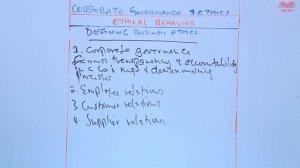 CORPORATE GOVERNANCE & ETHICS
ETHICAL BEHAVIOR
DEFINING BUSINESS ETHICS
1. Corporate governance
transparency & accountability
in a Co's mgt & decision making
processes
2. Employee relations
3. Customer relations
4. Supplier relations